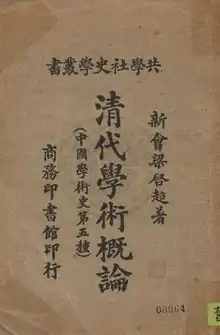 共學社史學叢書
新會梁啓超著
清代學術概論
（中國學術史第五種）
商務印書館印行
03864